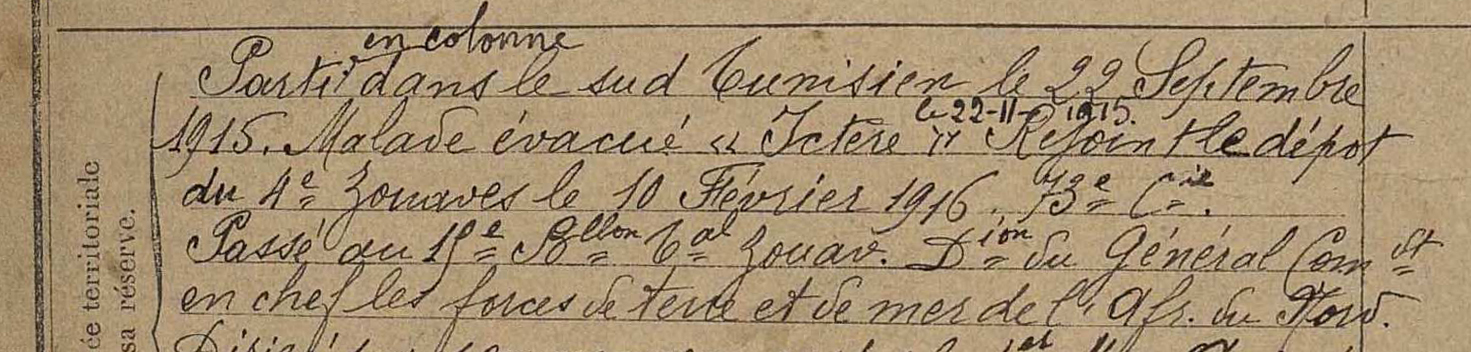 en colonne
Parti dans le sud Tunisien le 22 Septembre
le 22-11-1915.
1915. Malade évacué « Ictère » Rejoint le dépôt
du 4e Zouaves le 10 Février 1916. 73e Cie.
Passé au 15e Bllon Tal Zouav. Dion du Général Comdt
en chef les forces de terre et de mer de l'Afr. du Nord.
Dirigé
ée territoriale
sa réserve.